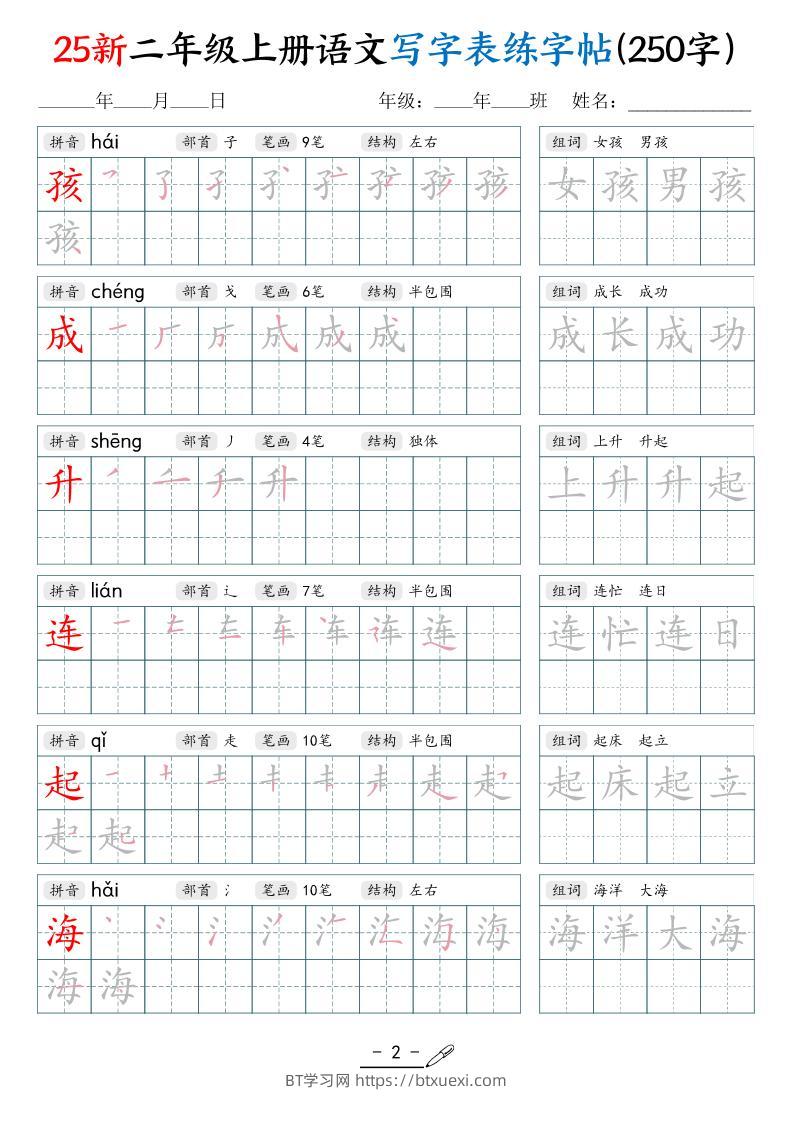 25新二年级上册语文写字表练字帖(250字)
______年____月____日 年级：____年____班 姓名：_____________
拼音 hái 部首 子 笔画 9笔 结构 左右 组词 女孩 男孩
孩 女孩男孩
孩
拼音 chéng 部首 戈 笔画 6笔 结构 半包围 组词 成长 成功
成 成长成功
拼音 shēng 部首 丿 笔画 4笔 结构 独体 组词 上升 升起
升 上升升起
拼音 lián 部首 辶 笔画 7笔 结构 半包围 组词 连忙 连日
连 连忙连日
拼音 qǐ 部首 走 笔画 10笔 结构 半包围 组词 起床 起立
起 起床起立
起起
拼音 hǎi 部首 氵 笔画 10笔 结构 左右 组词 海洋 大海
海 海洋大海
海海
- 2 -
BT学习网 https://btxuexi.com